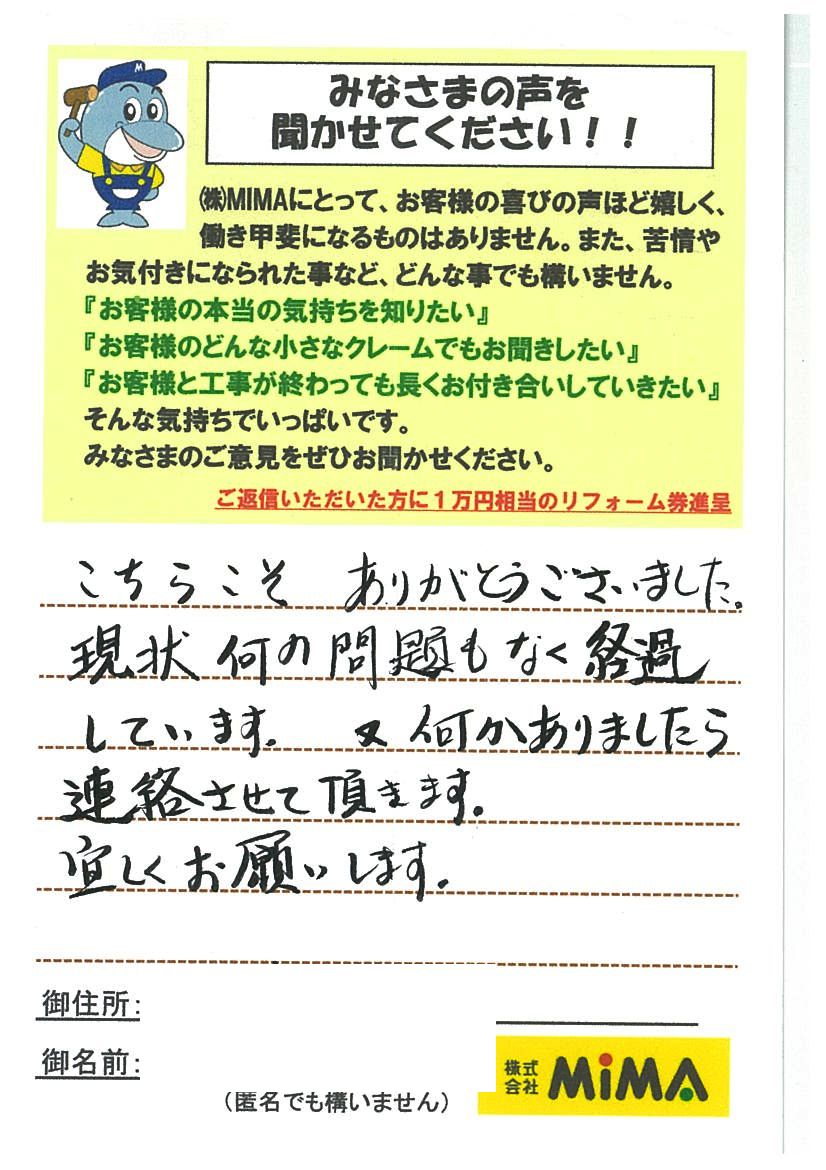 M
みなさまの声を
聞かせてください！！
㈱MIMAにとって、お客様の喜びの声ほど嬉しく、
働き甲斐になるものはありません。また、苦情や
お気付きになられた事など、どんな事でも構いません。
『お客様の本当の気持ちを知りたい』
『お客様のどんな小さなクレームでもお聞きしたい』
『お客様と工事が終わっても長くお付き合いしていきたい』
そんな気持ちでいっぱいです。
みなさまのご意見をぜひお聞かせください。
ご返信いただいた方に１万円相当のリフォーム券進呈
こちらこそ ありがとうございました。
現状 何の問題もなく経過
しています。 又何かありましたら
連絡させて頂きます。
宜しくお願いします。
御住所：
御名前：
（匿名でも構いません）
株式
会社
MiMA